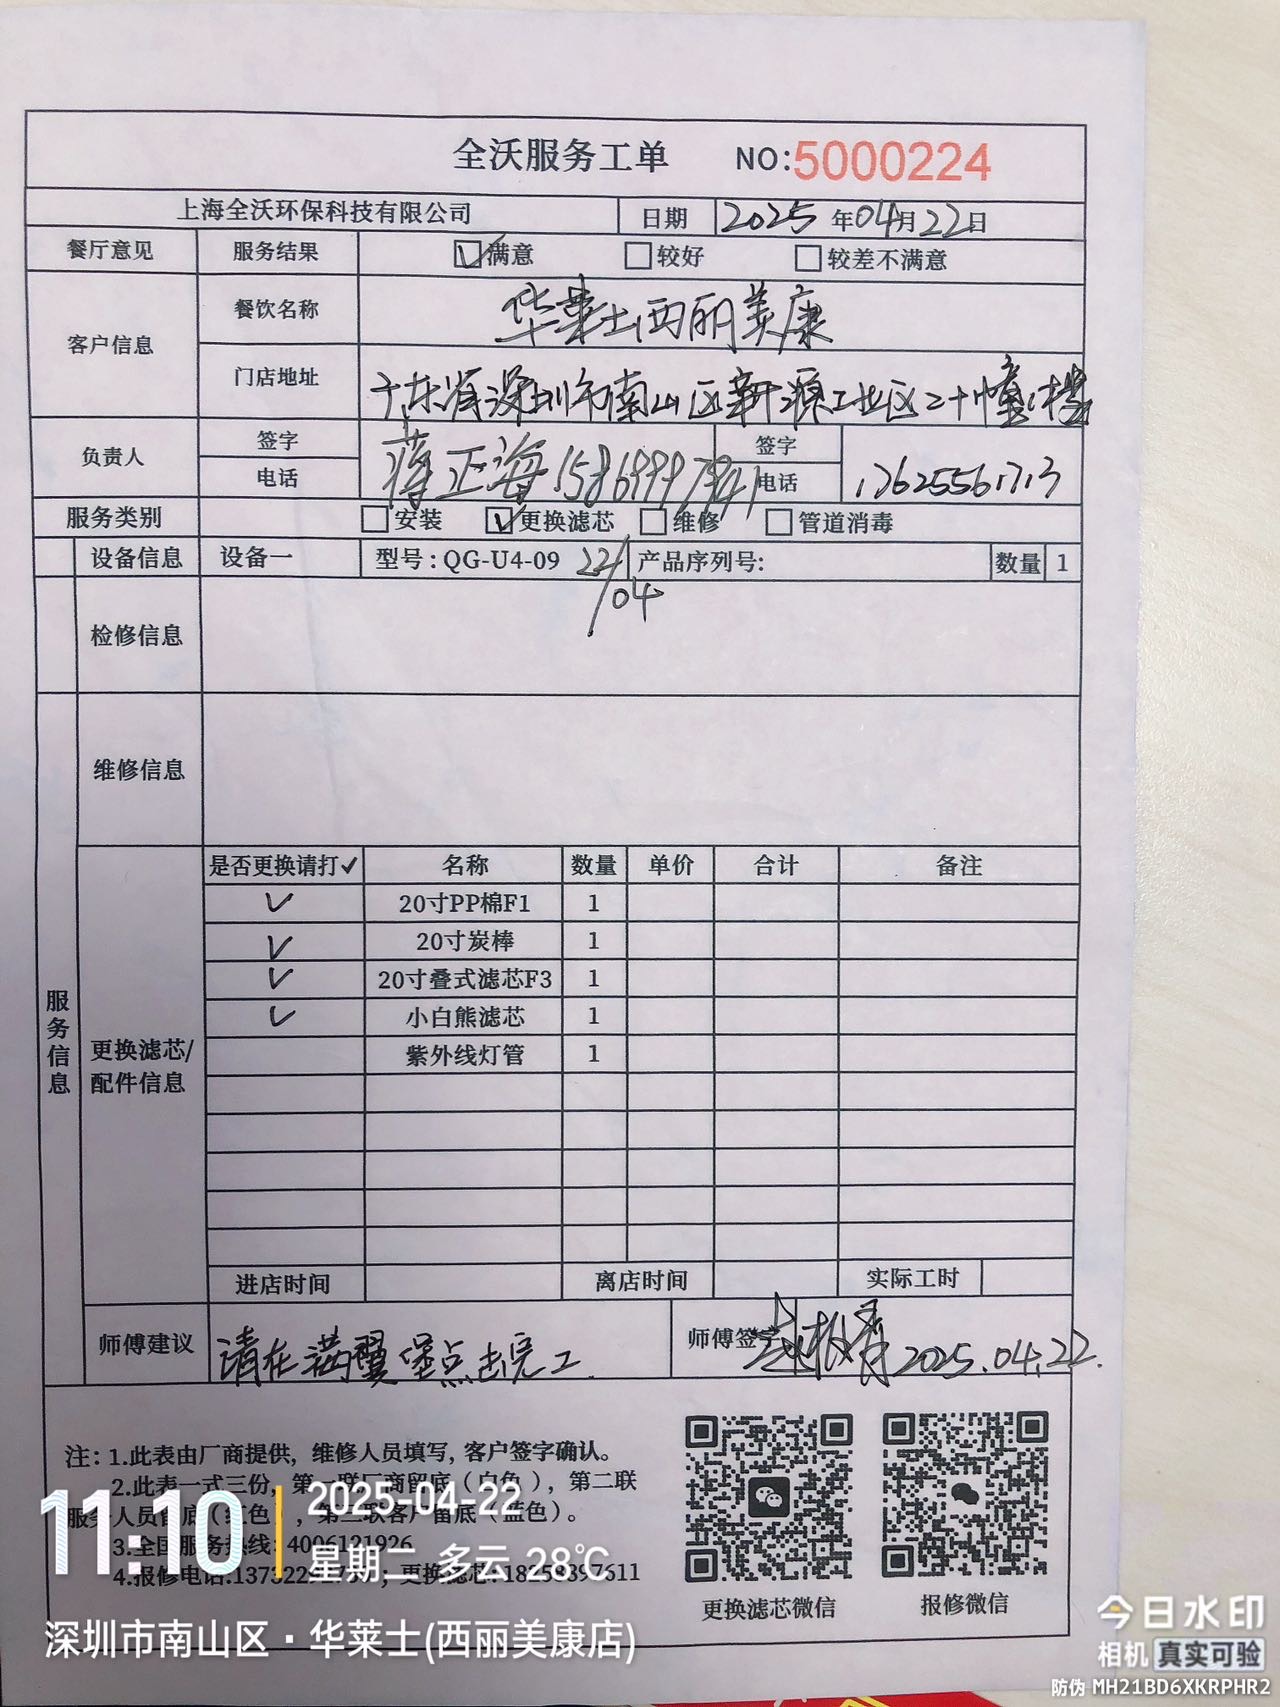 全沃服务工单 NO:5000224
上海全沃环保科技有限公司 日期 2025年04月22日
餐厅意见 服务结果 ☑满意 □较好 □较差不满意
客户信息 餐饮名称 华莱士西丽美康
门店地址 广东省深圳市南山区新源工业区二十幢1楼
负责人 签字 蒋正海 签字
电话 15869997941 电话 17625561713
服务类别 □安装 ☑更换滤芯 □维修 □管道消毒
设备信息 设备一 型号:QG-U4-09 22/04 产品序列号: 数量 1
检修信息
维修信息
服务信息
更换滤芯/配件信息
是否更换请打✓ 名称 数量 单价 合计 备注
✓ 20寸PP棉F1 1
✓ 20寸炭棒 1
✓ 20寸叠式滤芯F3 1
✓ 小白熊滤芯 1
紫外线灯管 1
进店时间 离店时间 实际工时
师傅建议 请在满翼堡点击完工 师傅签字 2025.04.22.
注:1.此表由厂商提供,维修人员填写,客户签字确认。
2.此表一式三份,第一联厂商留底(白色),第二联
服务人员留底(红色),第三联客户留底(蓝色)。
3.全国服务热线:4006121926
4.报修电话:; 更换滤芯:18258397611
更换滤芯微信 报修微信
11:10 2025-04-22
星期二 多云 28℃
深圳市南山区·华莱士(西丽美康店)
今日水印
相机 真实可验
防伪 MH21BD6XKRPHR2